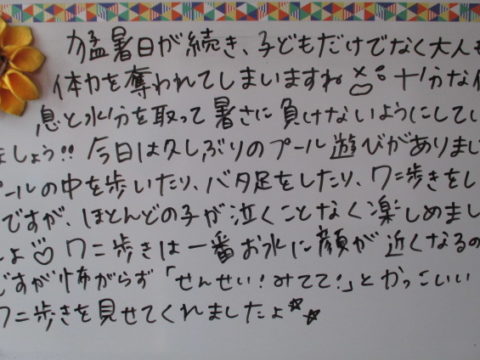 猛暑日が続き、子どもだけでなく大人も
体力を奪われてしまいますね 十分な休
息と水分を取って暑さに負けないようにしてい
ましょう!! 今日は久しぶりのプール遊びがありまし
プールの中を歩いたり、バタ足をしたり、ワニ歩きをし
ですが、ほとんどの子が泣くことなく楽しめまし
しょ♡ ワニ歩きは一番お水に顔が近くなるの
ですが怖がらず「せんせい!みてて!」とかっこいい
ワニ歩きを見せてくれましたよ☆☆